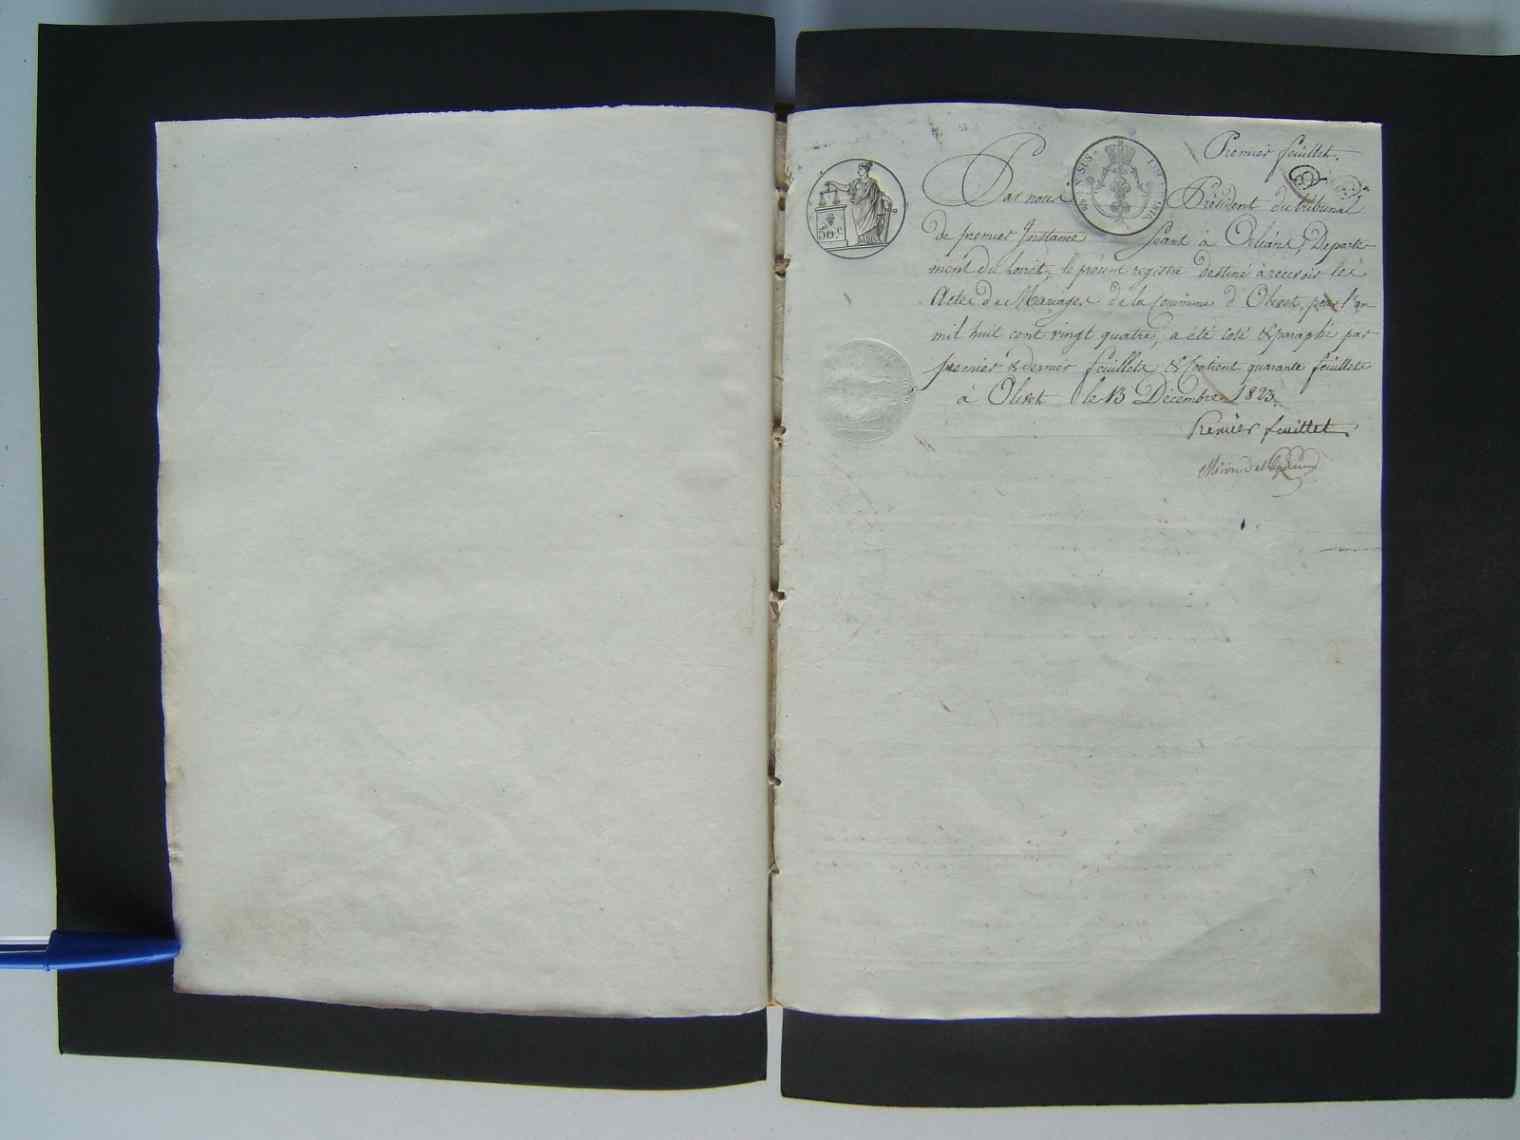 Premier feuillet.
Par nous Président du tribunal
de premier Instance séant à Orléans, Departe-
ment du Loiret, le présent registre destiné à recevoir les
Actes de Mariages de la Commune d'Olivet, pour l'an
mil huit cent vingt quatre, a été coté & paraphé par
premier & dernier feuillets & contient quarante feuillets
à Olivet le 13 Décembre 1823.
Premier feuillet.
50.c